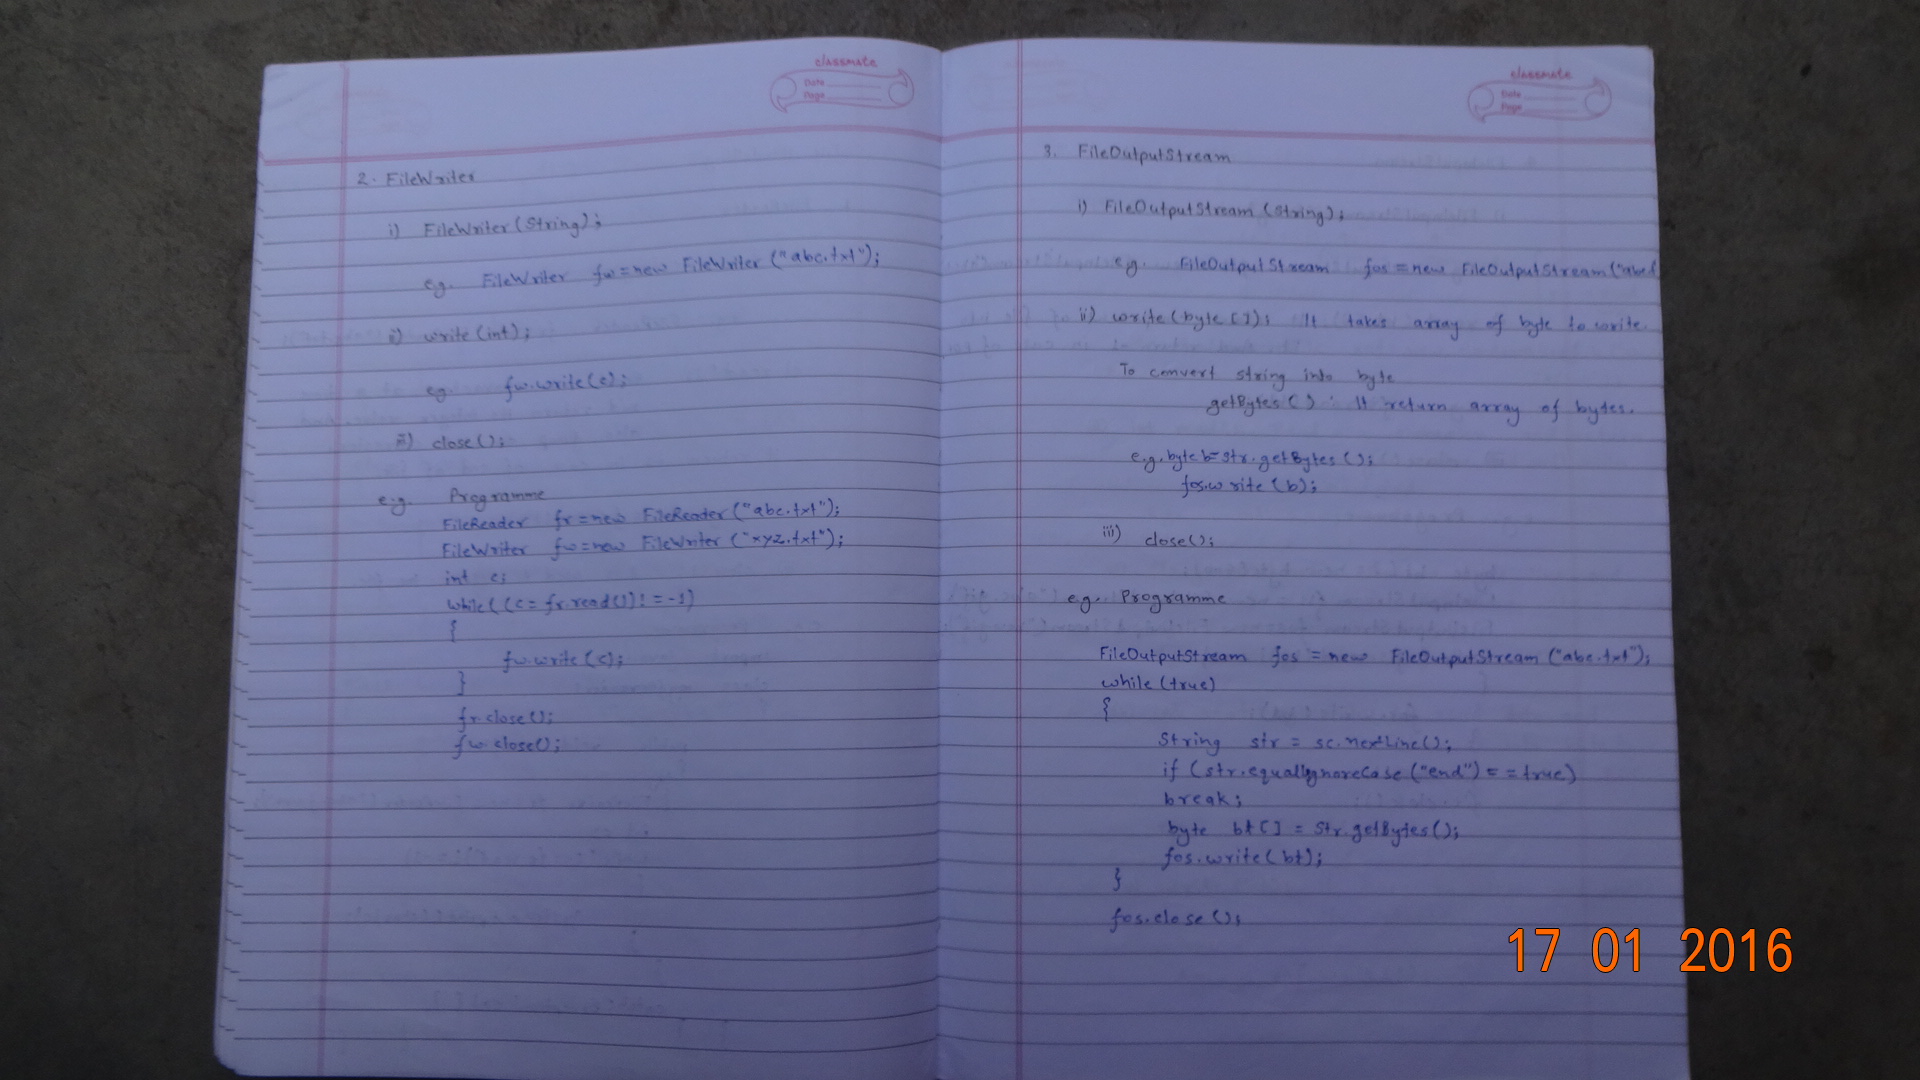 classmate
Date
Page
2. FileWriter
i) FileWriter (String);
eg. FileWriter fw = new FileWriter ("abc.txt");
ii) write (int);
eg. fw.write(c);
iii) close();
e.g. Programme
FileReader fr = new FileReader ("abc.txt");
FileWriter fw = new FileWriter ("xyz.txt");
int c;
while((c = fr.read())! = -1)
{
fw.write (c);
}
fr.close();
fw.close();
classmate
Date
Page
3. FileOutputStream
i) FileOutputStream (String);
eg. FileOutputStream fos = new FileOutputStream ("abc.t
ii) write (byte []): It takes array of byte to write.
To convert string into byte
getBytes () : It return array of bytes.
e.g. byte b= str.getBytes ();
fos.write (b);
iii) close();
eg. Programme
FileOutputStream fos = new FileOutputStream ("abc.txt");
while (true)
{
String str = sc.nextLine();
if (str.equalIgnoreCase ("end") = = true)
break;
byte bt [] = str.getBytes();
fos.write (bt);
}
fos.close ();
17 01 2016